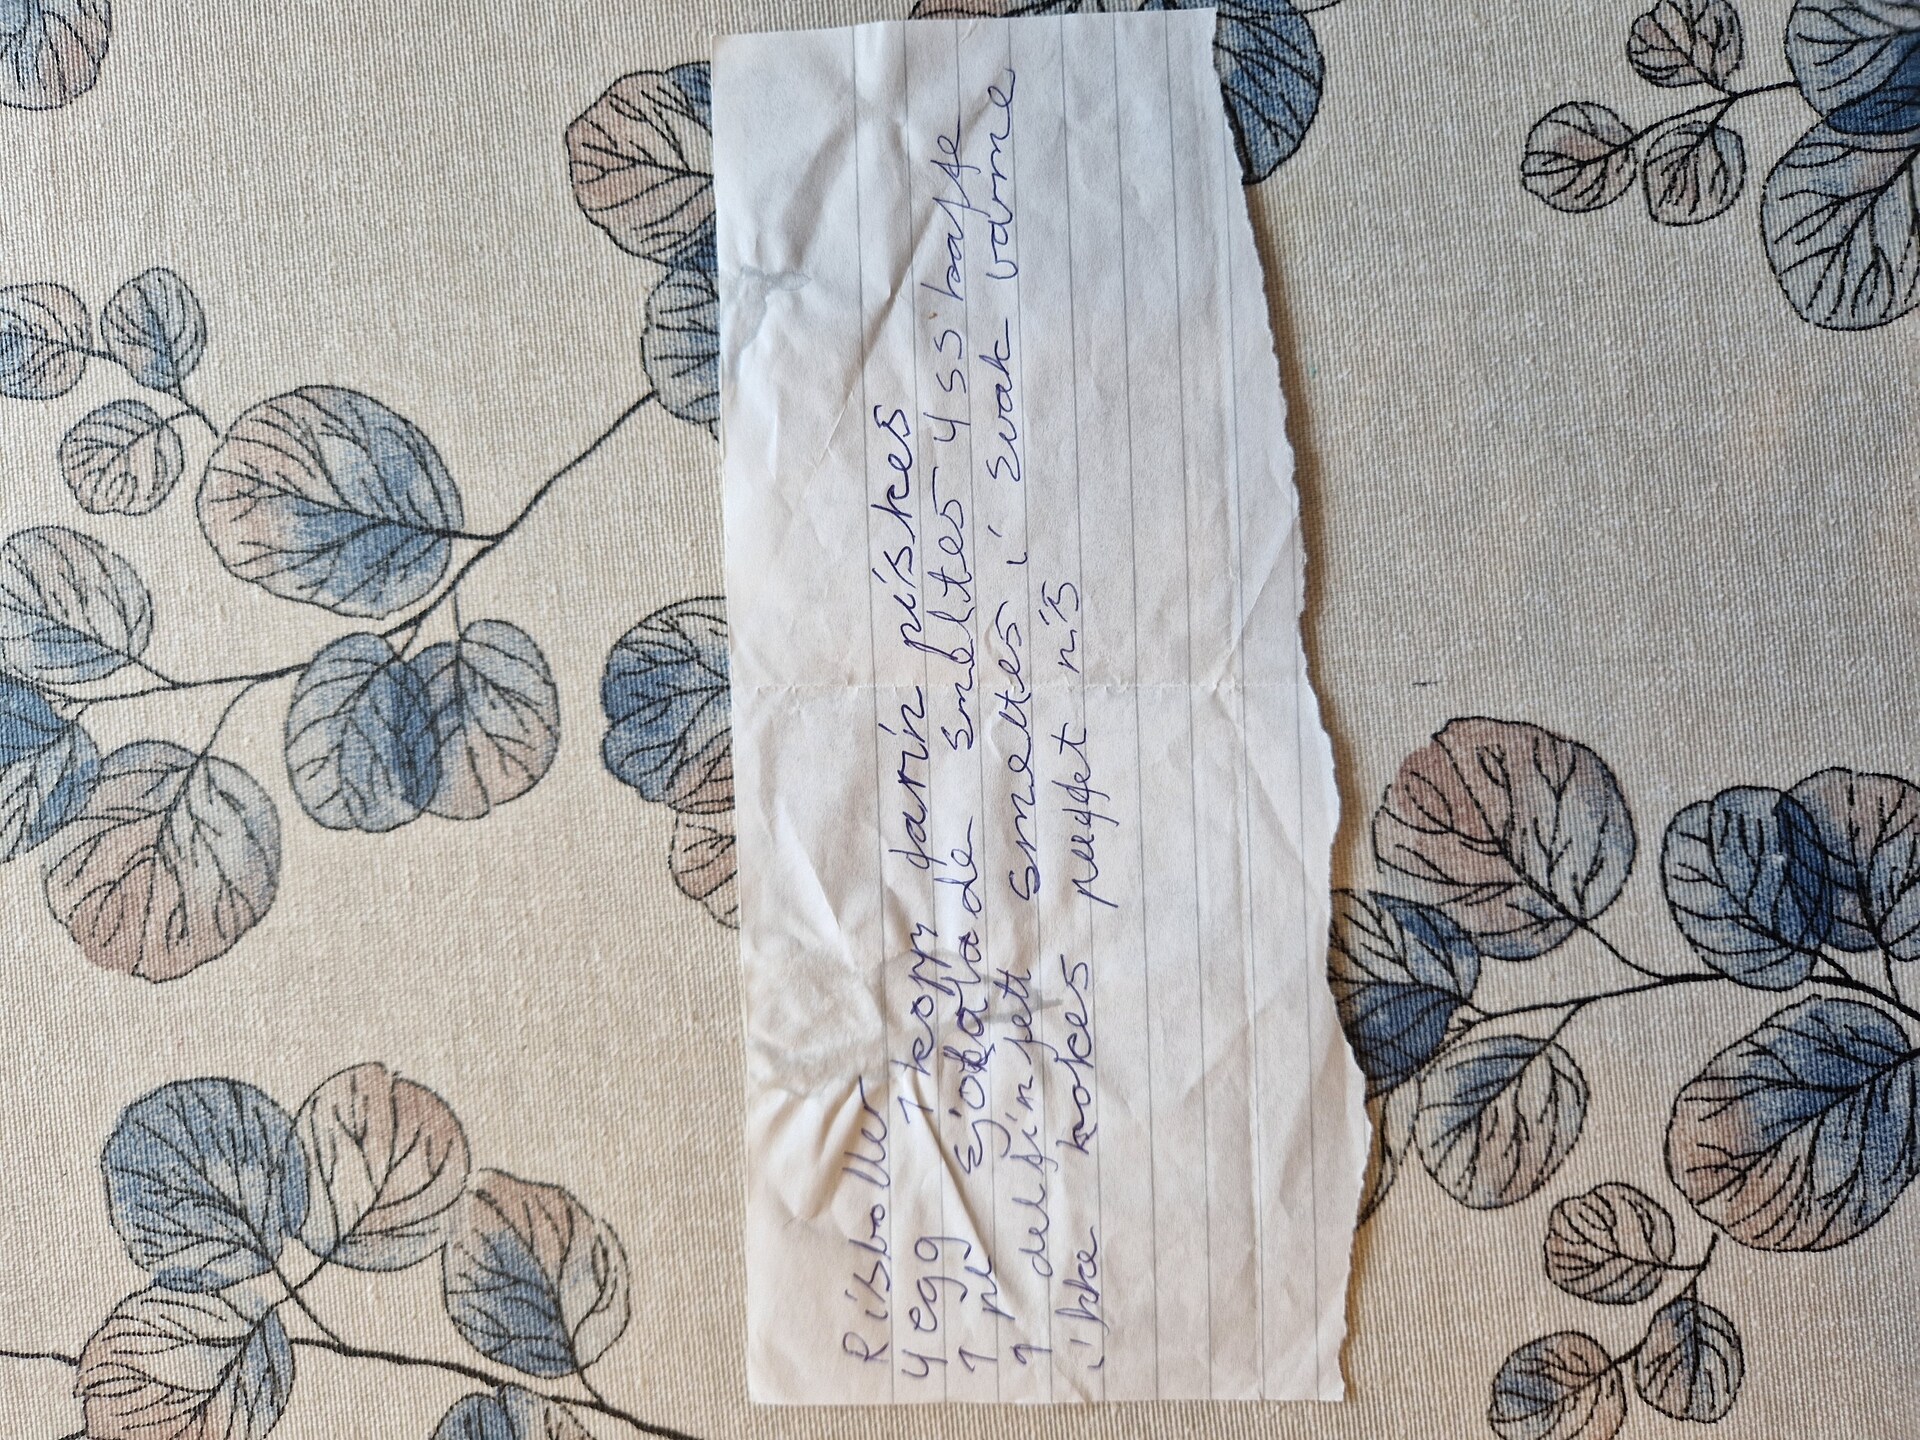 Risboller
4 egg 1 kopp farin piskes
1 pl sjokolade smeltes 4 ss kaffe
1 delfinfett smeltes i svak varme
ikke kokes puffet ris